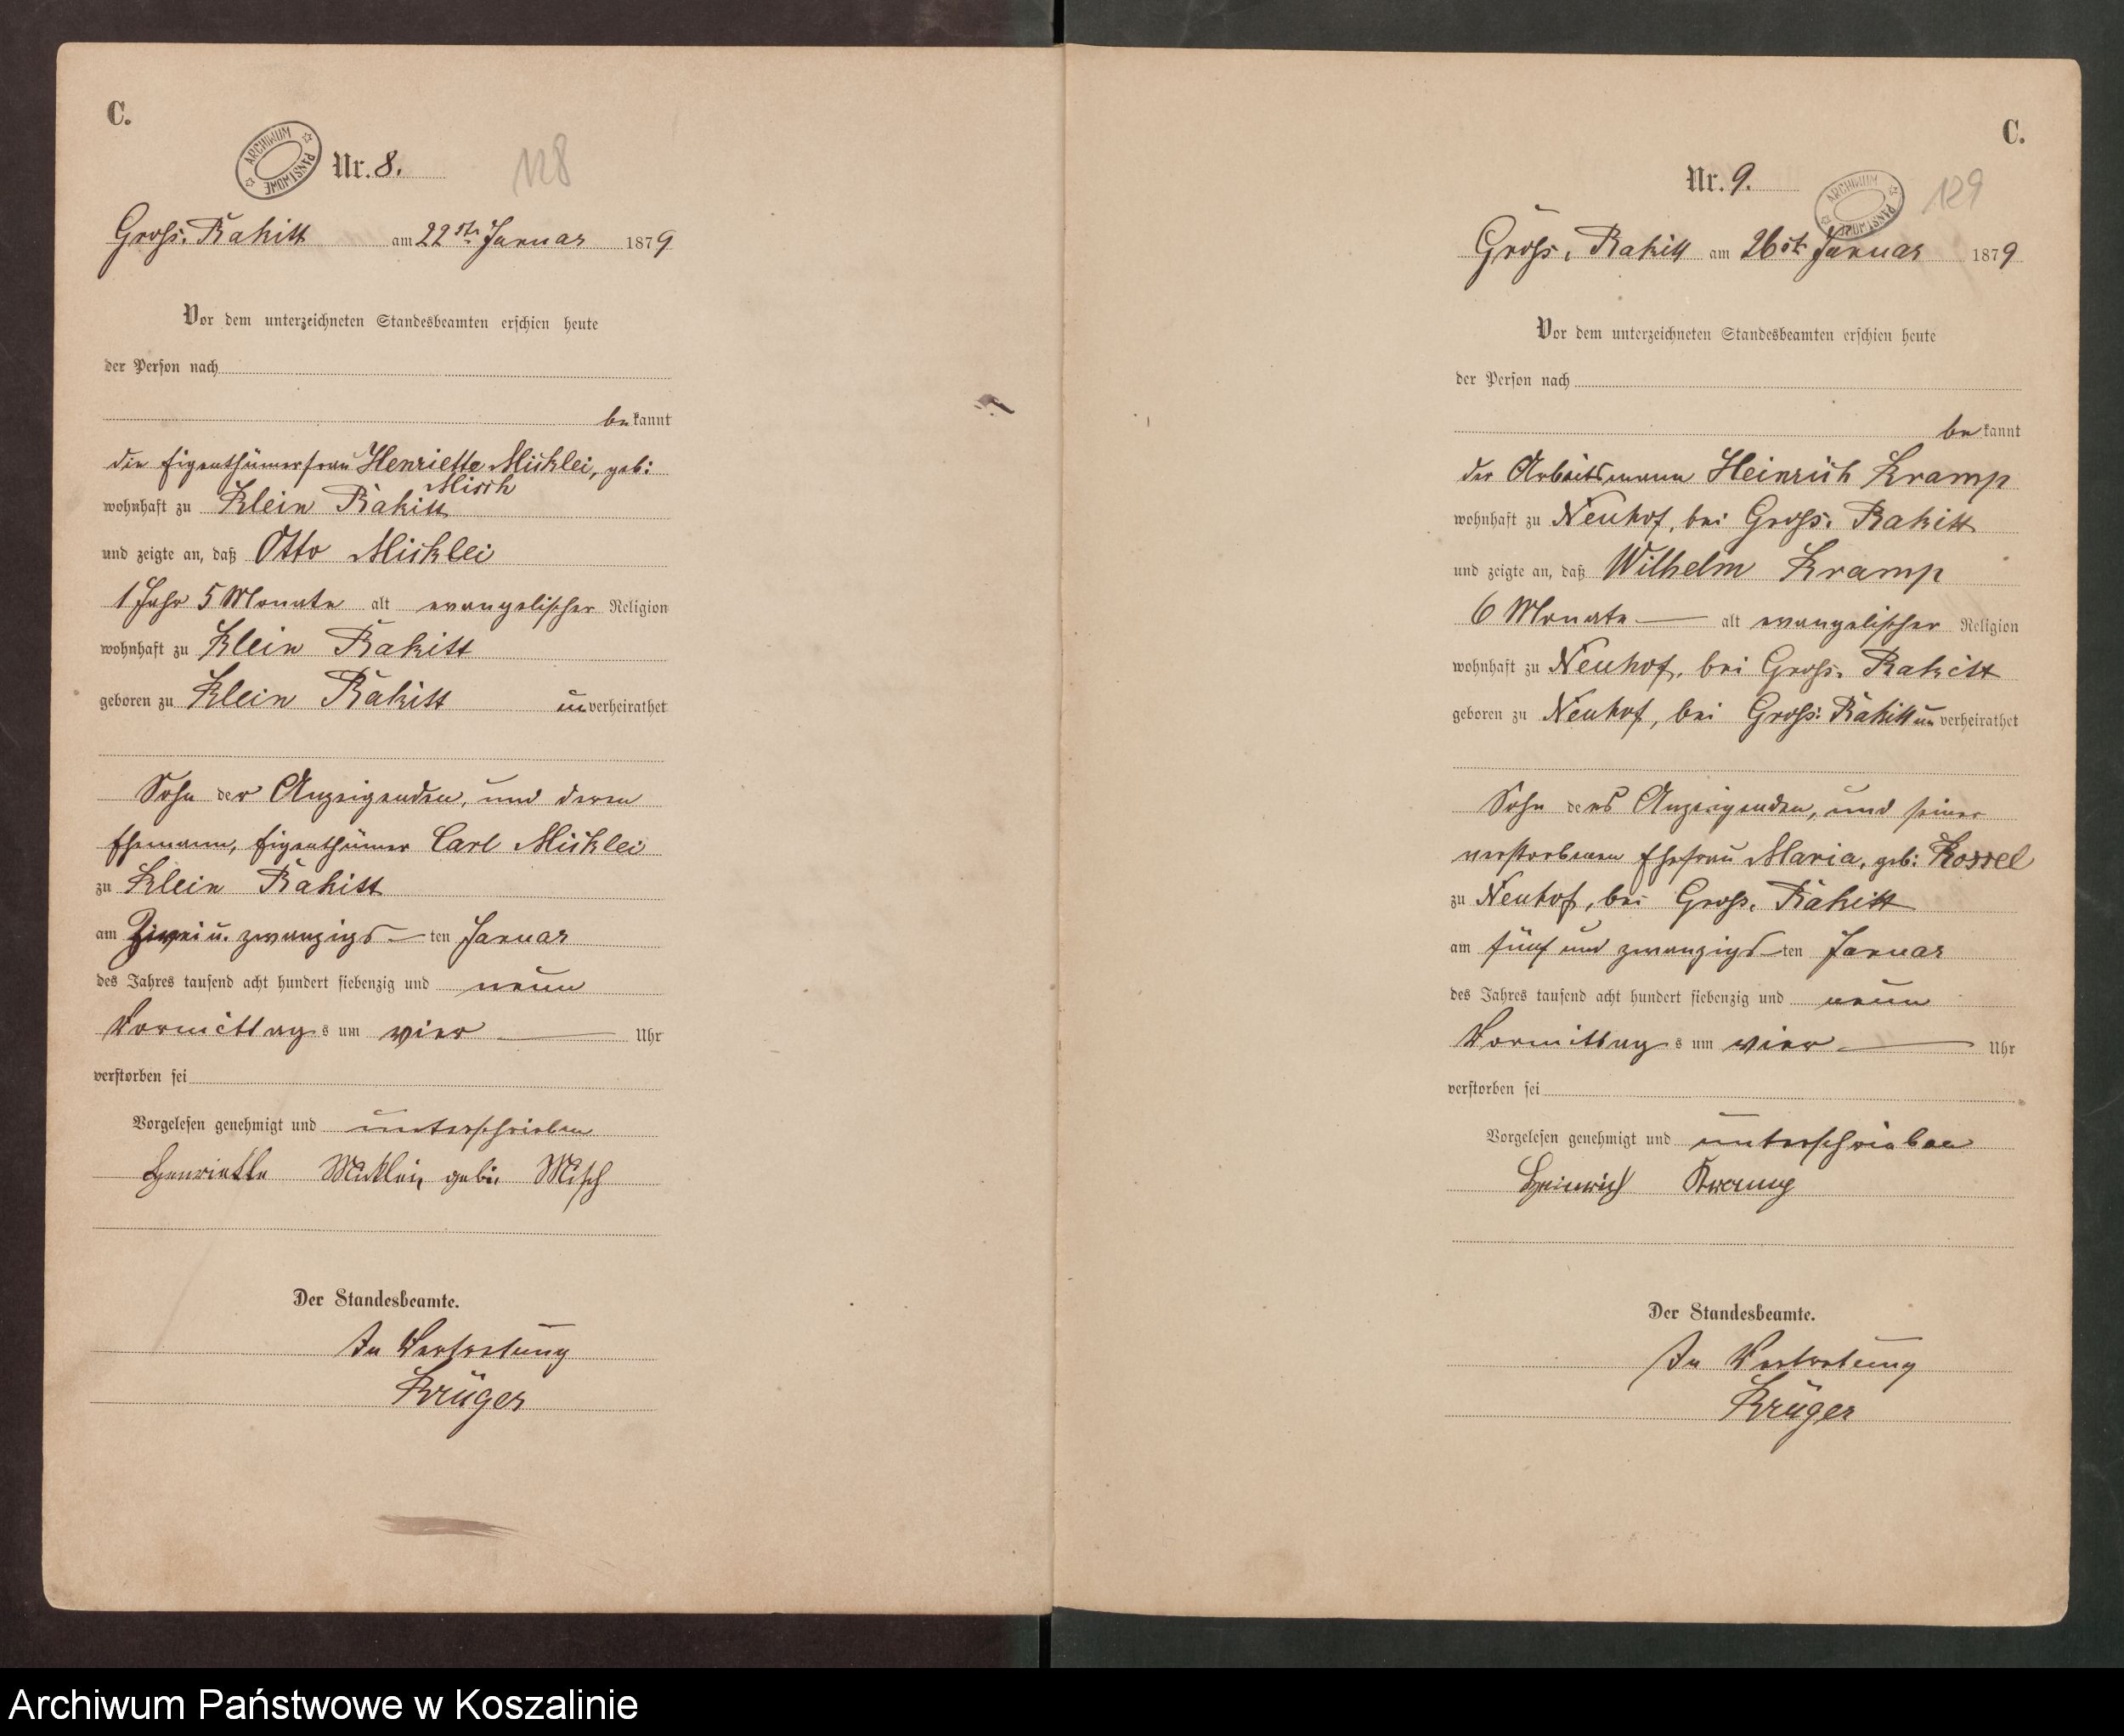 C.
ARCHIWUM PAŃSTWOWE
Nr. 8.
128
Gross. Rakitt am 22 ste Januar 1879
Vor dem unterzeichneten Standesbeamten erschien heute
der Person nach
be kannt
die Eigenthümerfrau Henriette Micklei, geb:
Misch
wohnhaft zu Klein Rakitt
und zeigte an, daß Otto Micklei
1 Jahr 5 Monate alt evangelischer Religion
wohnhaft zu Klein Rakitt
geboren zu Klein Rakitt un verheirathet
Sohn der Anzeigenden, und deren
Ehemann, Eigenthümer Carl Micklei
zu Klein Rakitt
am Zwei u. zwanzigs ten Januar
des Jahres tausend acht hundert siebenzig und neun
Vormittag s um vier Uhr
verstorben sei
Vorgelesen genehmigt und unterschrieben
Henriette Micklei, geb: Misch
Der Standesbeamte.
In Vertretung
Krüger
C.
Nr. 9.
ARCHIWUM PAŃSTWOWE
129
Gross. Rakitt am 26 ste Januar 1879
Vor dem unterzeichneten Standesbeamten erschien heute
der Person nach
be kannt
der Arbeitsmann Heinrich Kramp
wohnhaft zu Neuhof, bei Gross. Rakitt
und zeigte an, daß Wilhelm Kramp
6 Monate alt evangelischer Religion
wohnhaft zu Neuhof, bei Gross. Rakitt
geboren zu Neuhof, bei Gross: Rakitt un verheirathet
Sohn des Anzeigenden, und seiner
verstorbenen Ehefrau Maria, geb: Kossel
zu Neuhof, bei Gross. Rakitt
am fünf und zwanzigs ten Januar
des Jahres tausend acht hundert siebenzig und neun
Vormittag s um vier Uhr
verstorben sei
Vorgelesen genehmigt und unterschrieben
Heinrich Kramp
Der Standesbeamte.
In Vertretung
Krüger
Archiwum Państwowe w Koszalinie